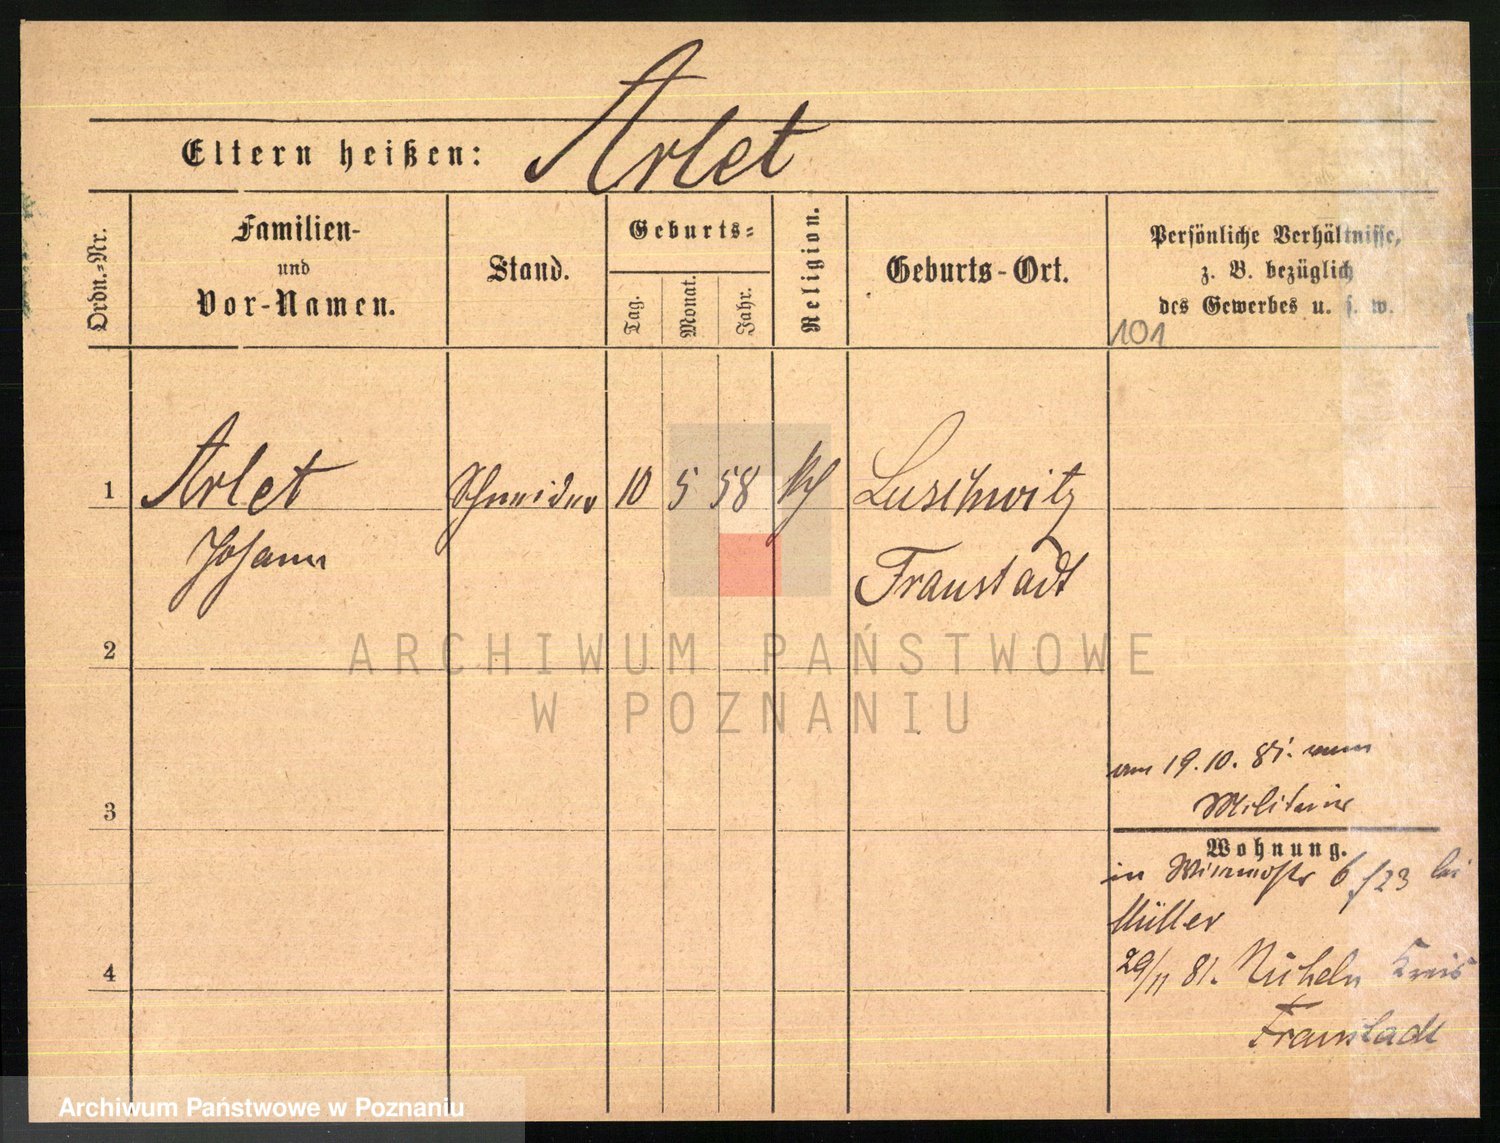 Arlet
Eltern heißen:
Ordn.-Nr.
Familien-
und
Vor-Namen.
Stand.
Geburts-
Tag.
Monat.
Jahr.
Religion.
Geburts-Ort.
Persönliche Verhältnisse,
z. B. bezüglich
des Gewerbes u. s. w.
101
1
Arlet
Johann
Schneider
10
5
58
Luschwitz
Fraustadt
2
3
4
am 19.10.81. vom
Militair
Wohnung.
in 6/23 bei
Müller
29/11 81. Kreis
Fraustadt
ARCHIWUM PAŃSTWOWE
W POZNANIU
Archiwum Państwowe w Poznaniu